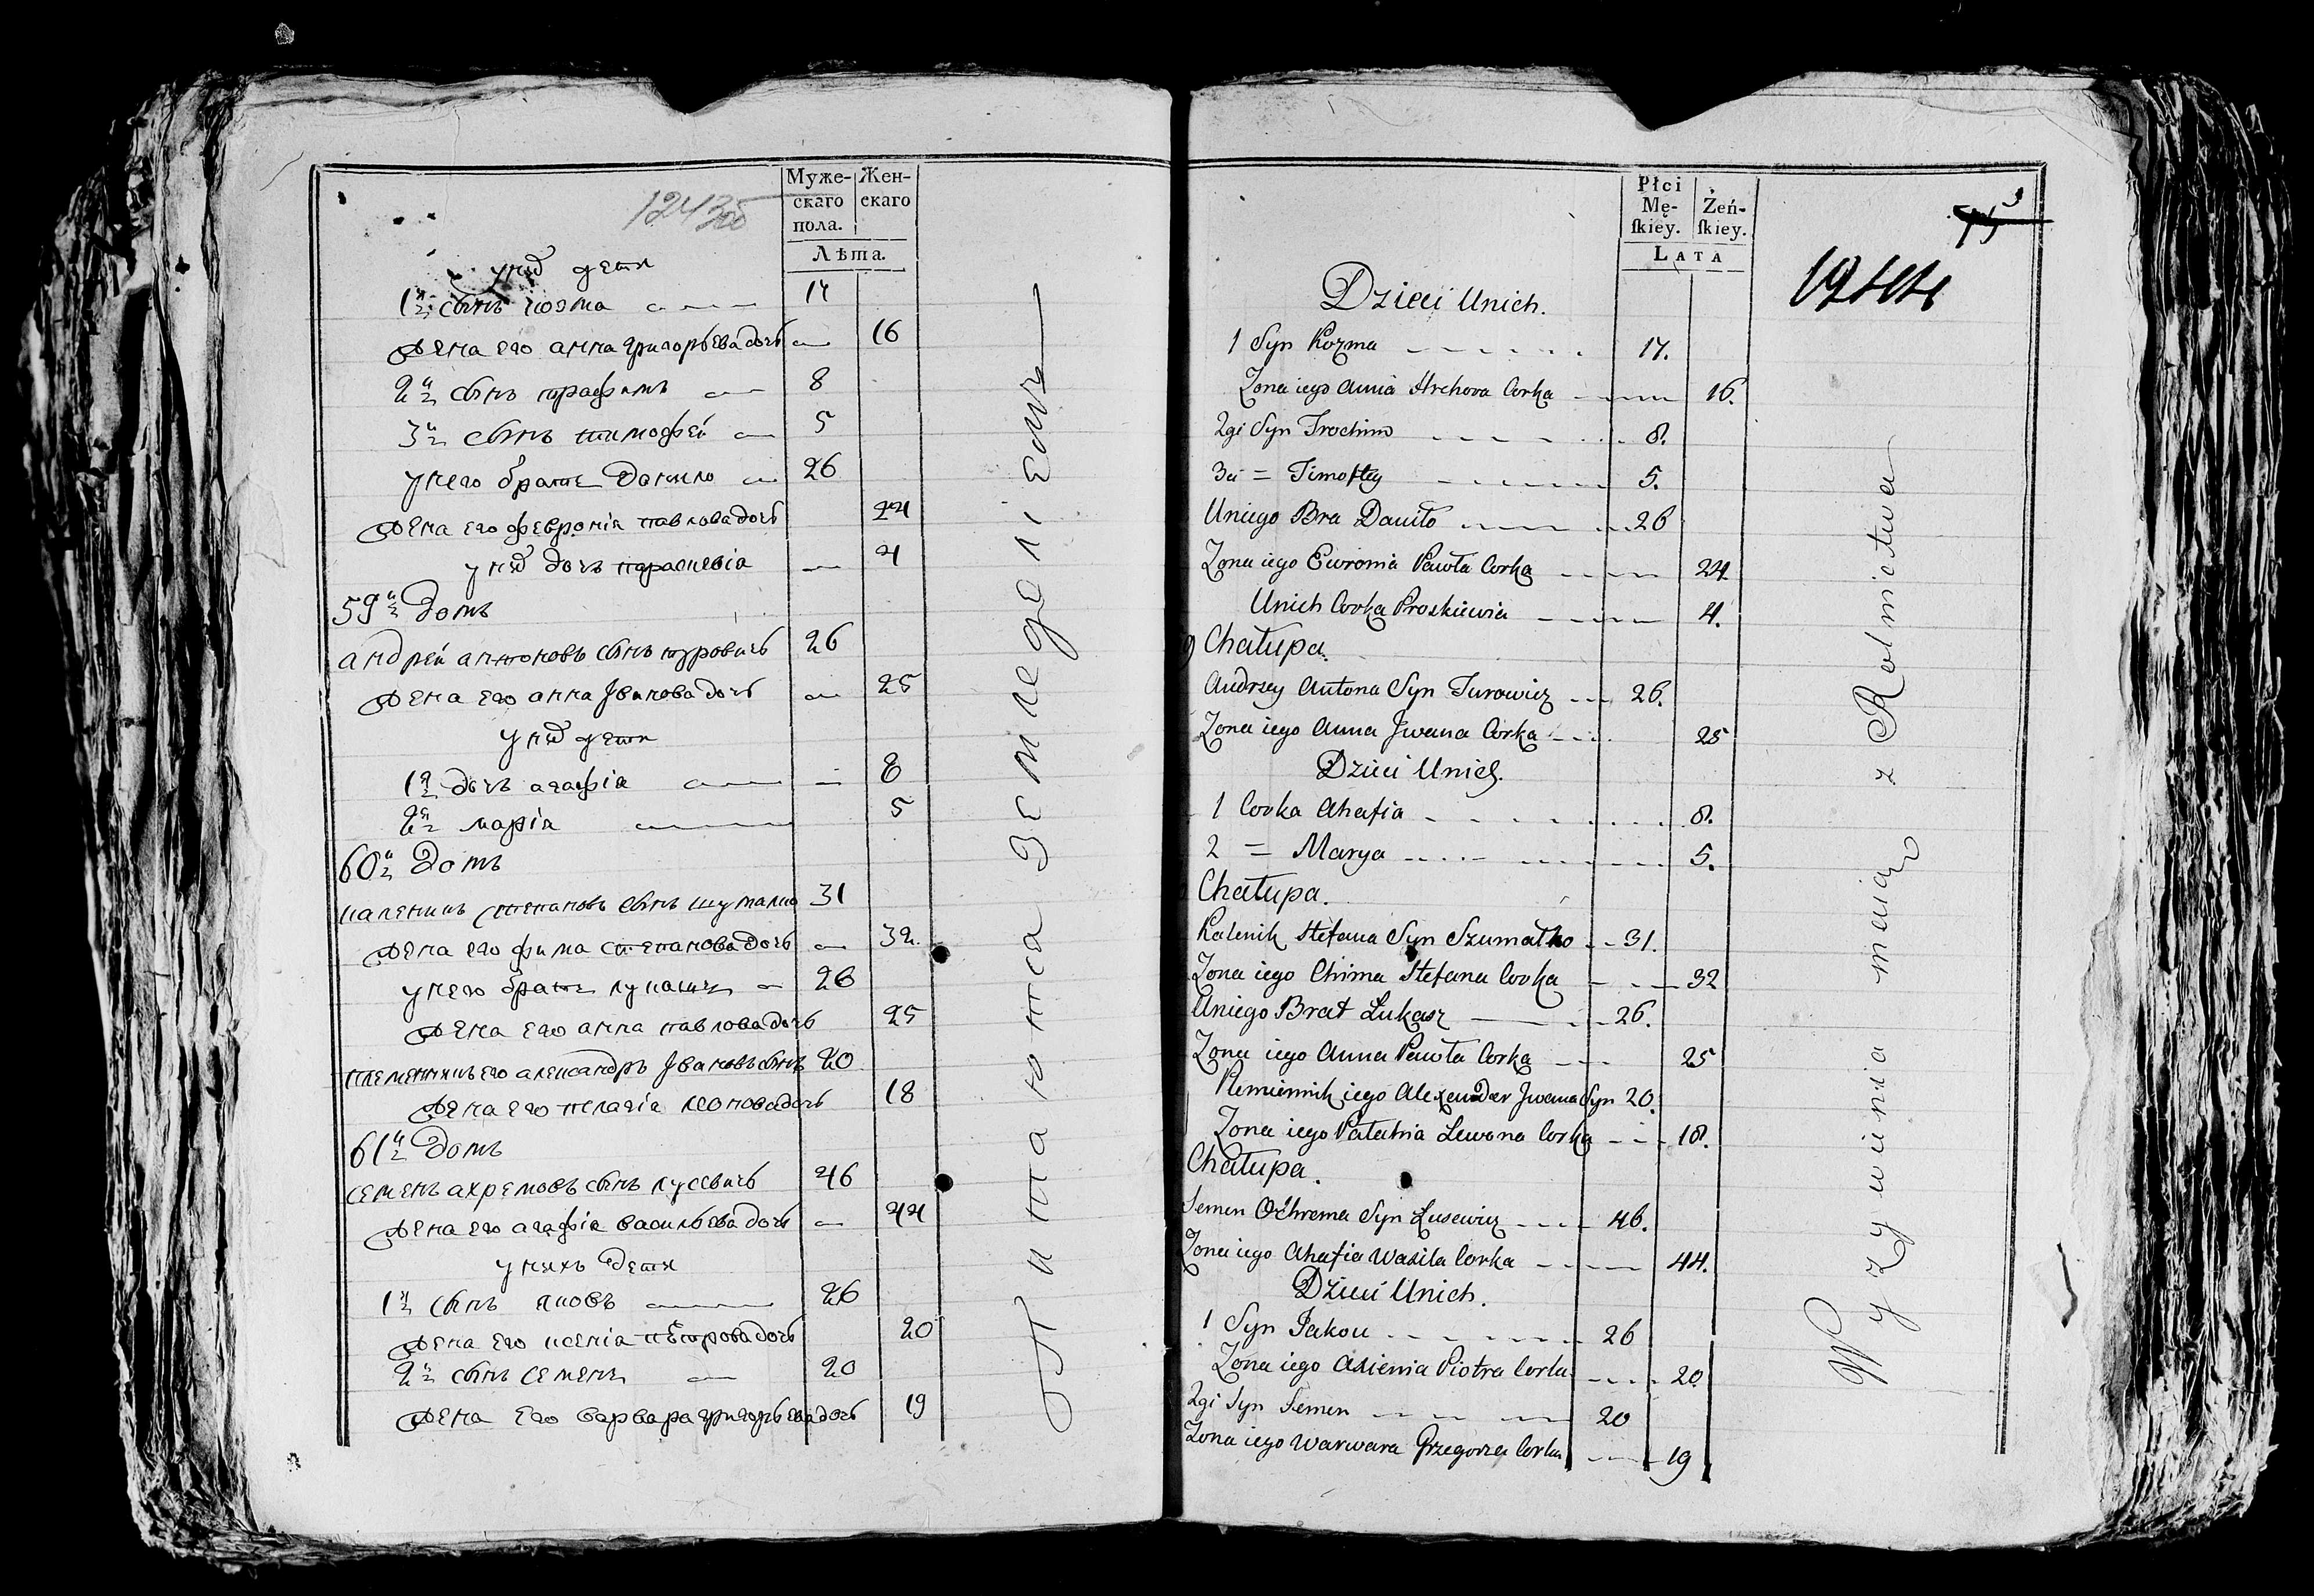 Муже-
скаго
пола.
Жен-
скаго
Лѣта.
124 об
у них дети
1й сынъ козма 17
жена его анна григорьева дочь 16
2й сынъ трафимъ 8
3й сынъ тимофей 5
у него братъ данило 26
жена его феврониа павлова дочь 24
у них дочь параскевіа 4
59й домъ
андрей антоновъ сынъ туровичь 26
жена его анна Іванова дочь 25
у них дети
1я дочь агафіа 8
2я маріа 5
60й домъ
каленикъ степановъ сынъ шумалко 31
жена его фима степанова дочь 32
у него братъ лукашъ 26
жена его анна павлова дочь 25
племенникъ его александръ Івановъ сынъ 20
жена его пелагіа леонова дочь 18
61й домъ
семенъ ахремовъ сынъ лусевичь 46
жена его агафіа васильева дочь 44
у нихъ дети
1й сынъ яковъ 26
жена его ксеніа пётрова дочь 20
2й сынъ семенъ 20
жена его варвара григорьева дочь 19
Питаютса земледеліемъ
Płci
Mę-
ſkiey.
Żeń-
ſkiey.
LATA
Dzieci Unich.
1 Syn Kozma 17.
Zona iego Anna Hrehora Corka 16.
2gi Syn Trochim 8.
3ci = Timoftey 5.
Uniego Bra Daniło 26
Zona iego Ewronia Pawła Corka 24.
Unich Corka Proskiewia 4.
9 Chałupa.
Andrzey Antona Syn Turowicz 26.
Zona iego Anna Jwana Corka 25
Dzieci Unich.
1 Corka Ahafia 8.
2 = Marya 5.
Chałupa.
Kalenik Stefana Syn Szumałko 31.
Zona iego Chima Stefana Corka 32
Uniego Brat Łukasz 26.
Zona iego Anna Pawła Corka 25
Plemiennik iego Alexander Jwana Syn 20.
Zona iego Pałahia Lewona Corka 18.
Chałupa.
Semen Ochrema Syn Łusewicz 46.
Zona iego Ahafia Wasila Corka 44.
Dzieci Unich.
1 Syn Jakou 26
Zona iego Axienia Piotra Corka 20
2gi Syn Semen 20
Zona iego Warwara Grzegorza Corka 19
Wyzywienia maią z Rolnictwa